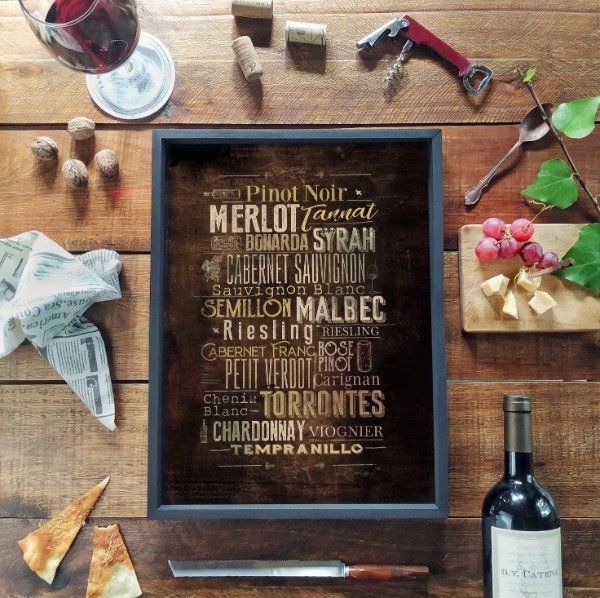 Pinot Noir
MERLOT Tannat
BONARDA SYRAH
CABERNET SAUVIGNON
Sauvignon Blanc
SEMILLÓN MALBEC
Riesling RIESLING
CABERNET FRANC ROSE
PINOT
PETIT VERDOT Carignan
Chenin
Blanc TORRONTES
CHARDONNAY VIOGNIER
TEMPRANILLO
D.V. CATENA